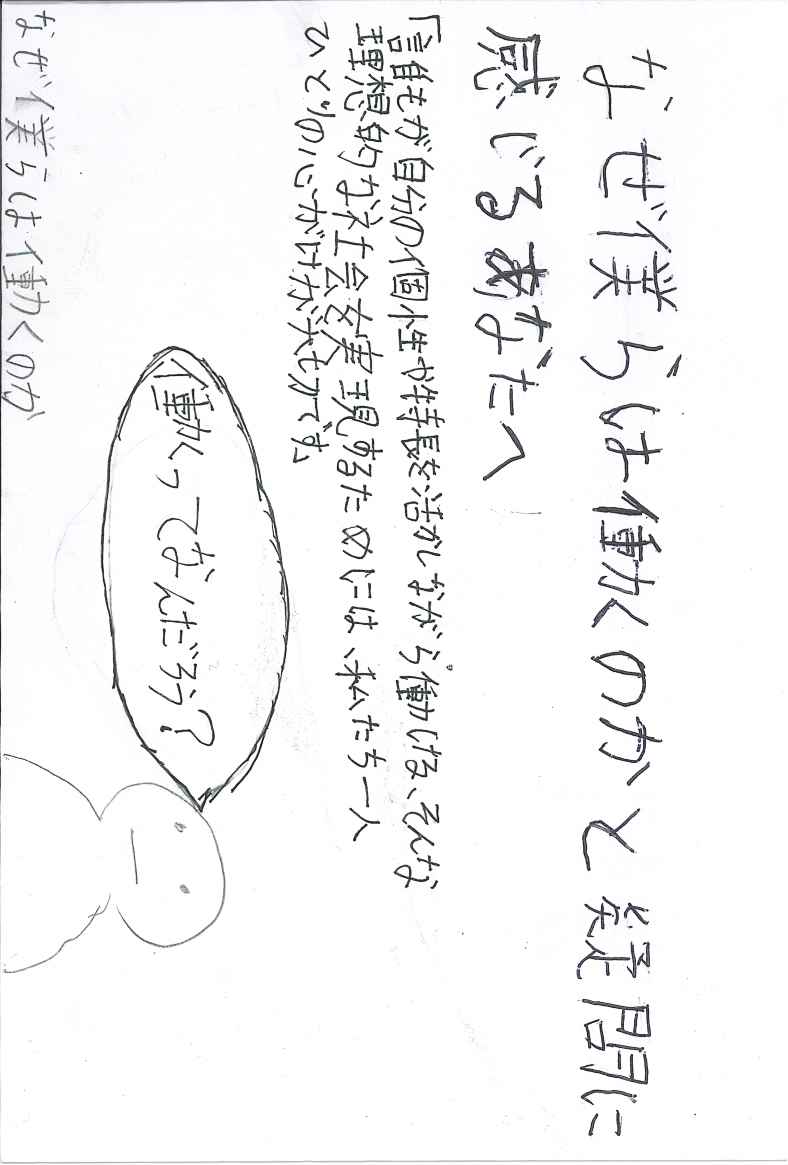 なぜ僕らは働くのかと疑問に
感じるあなたへ
「誰もが自分の個性や特長を活かしながら働ける、そんな
理想的な社会を実現するためには、私たち一人
ひとりの心がけが大切です。
働くってなんだろう?
なぜ僕らは働くのか